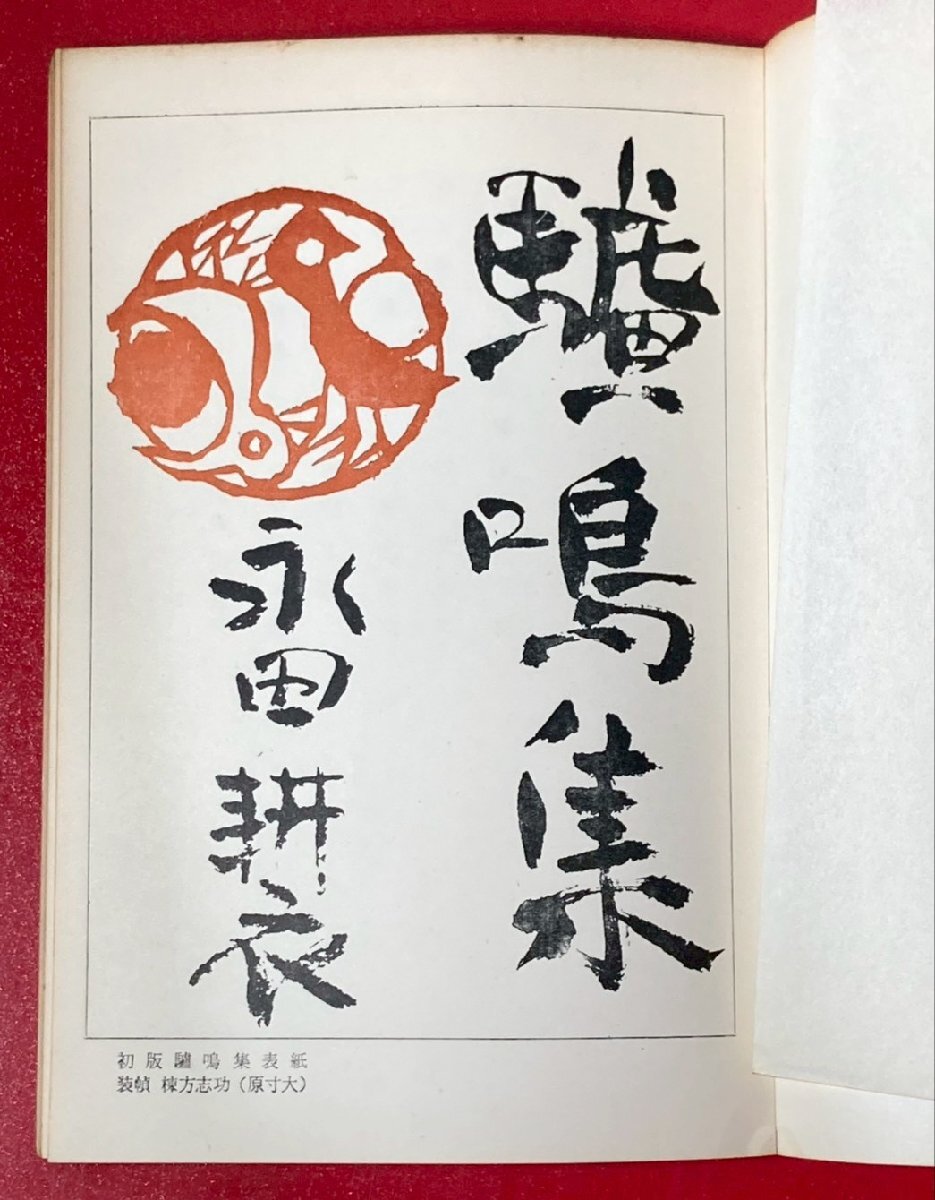 驢鳴集
永田耕衣
初版驢鳴集表紙
装幀 棟方志功(原寸大)